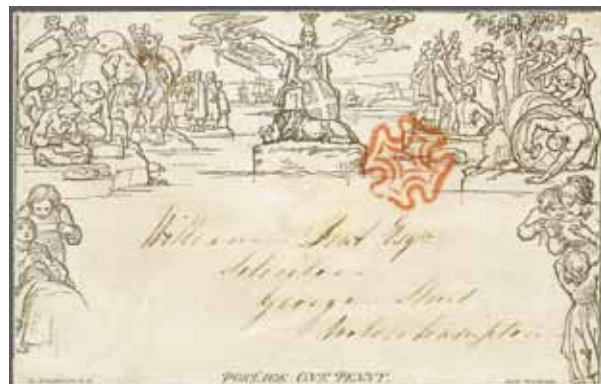 William Dent Esqr
Solicitor
George Street
Wolverhampton
POSTAGE ONE PENNY.